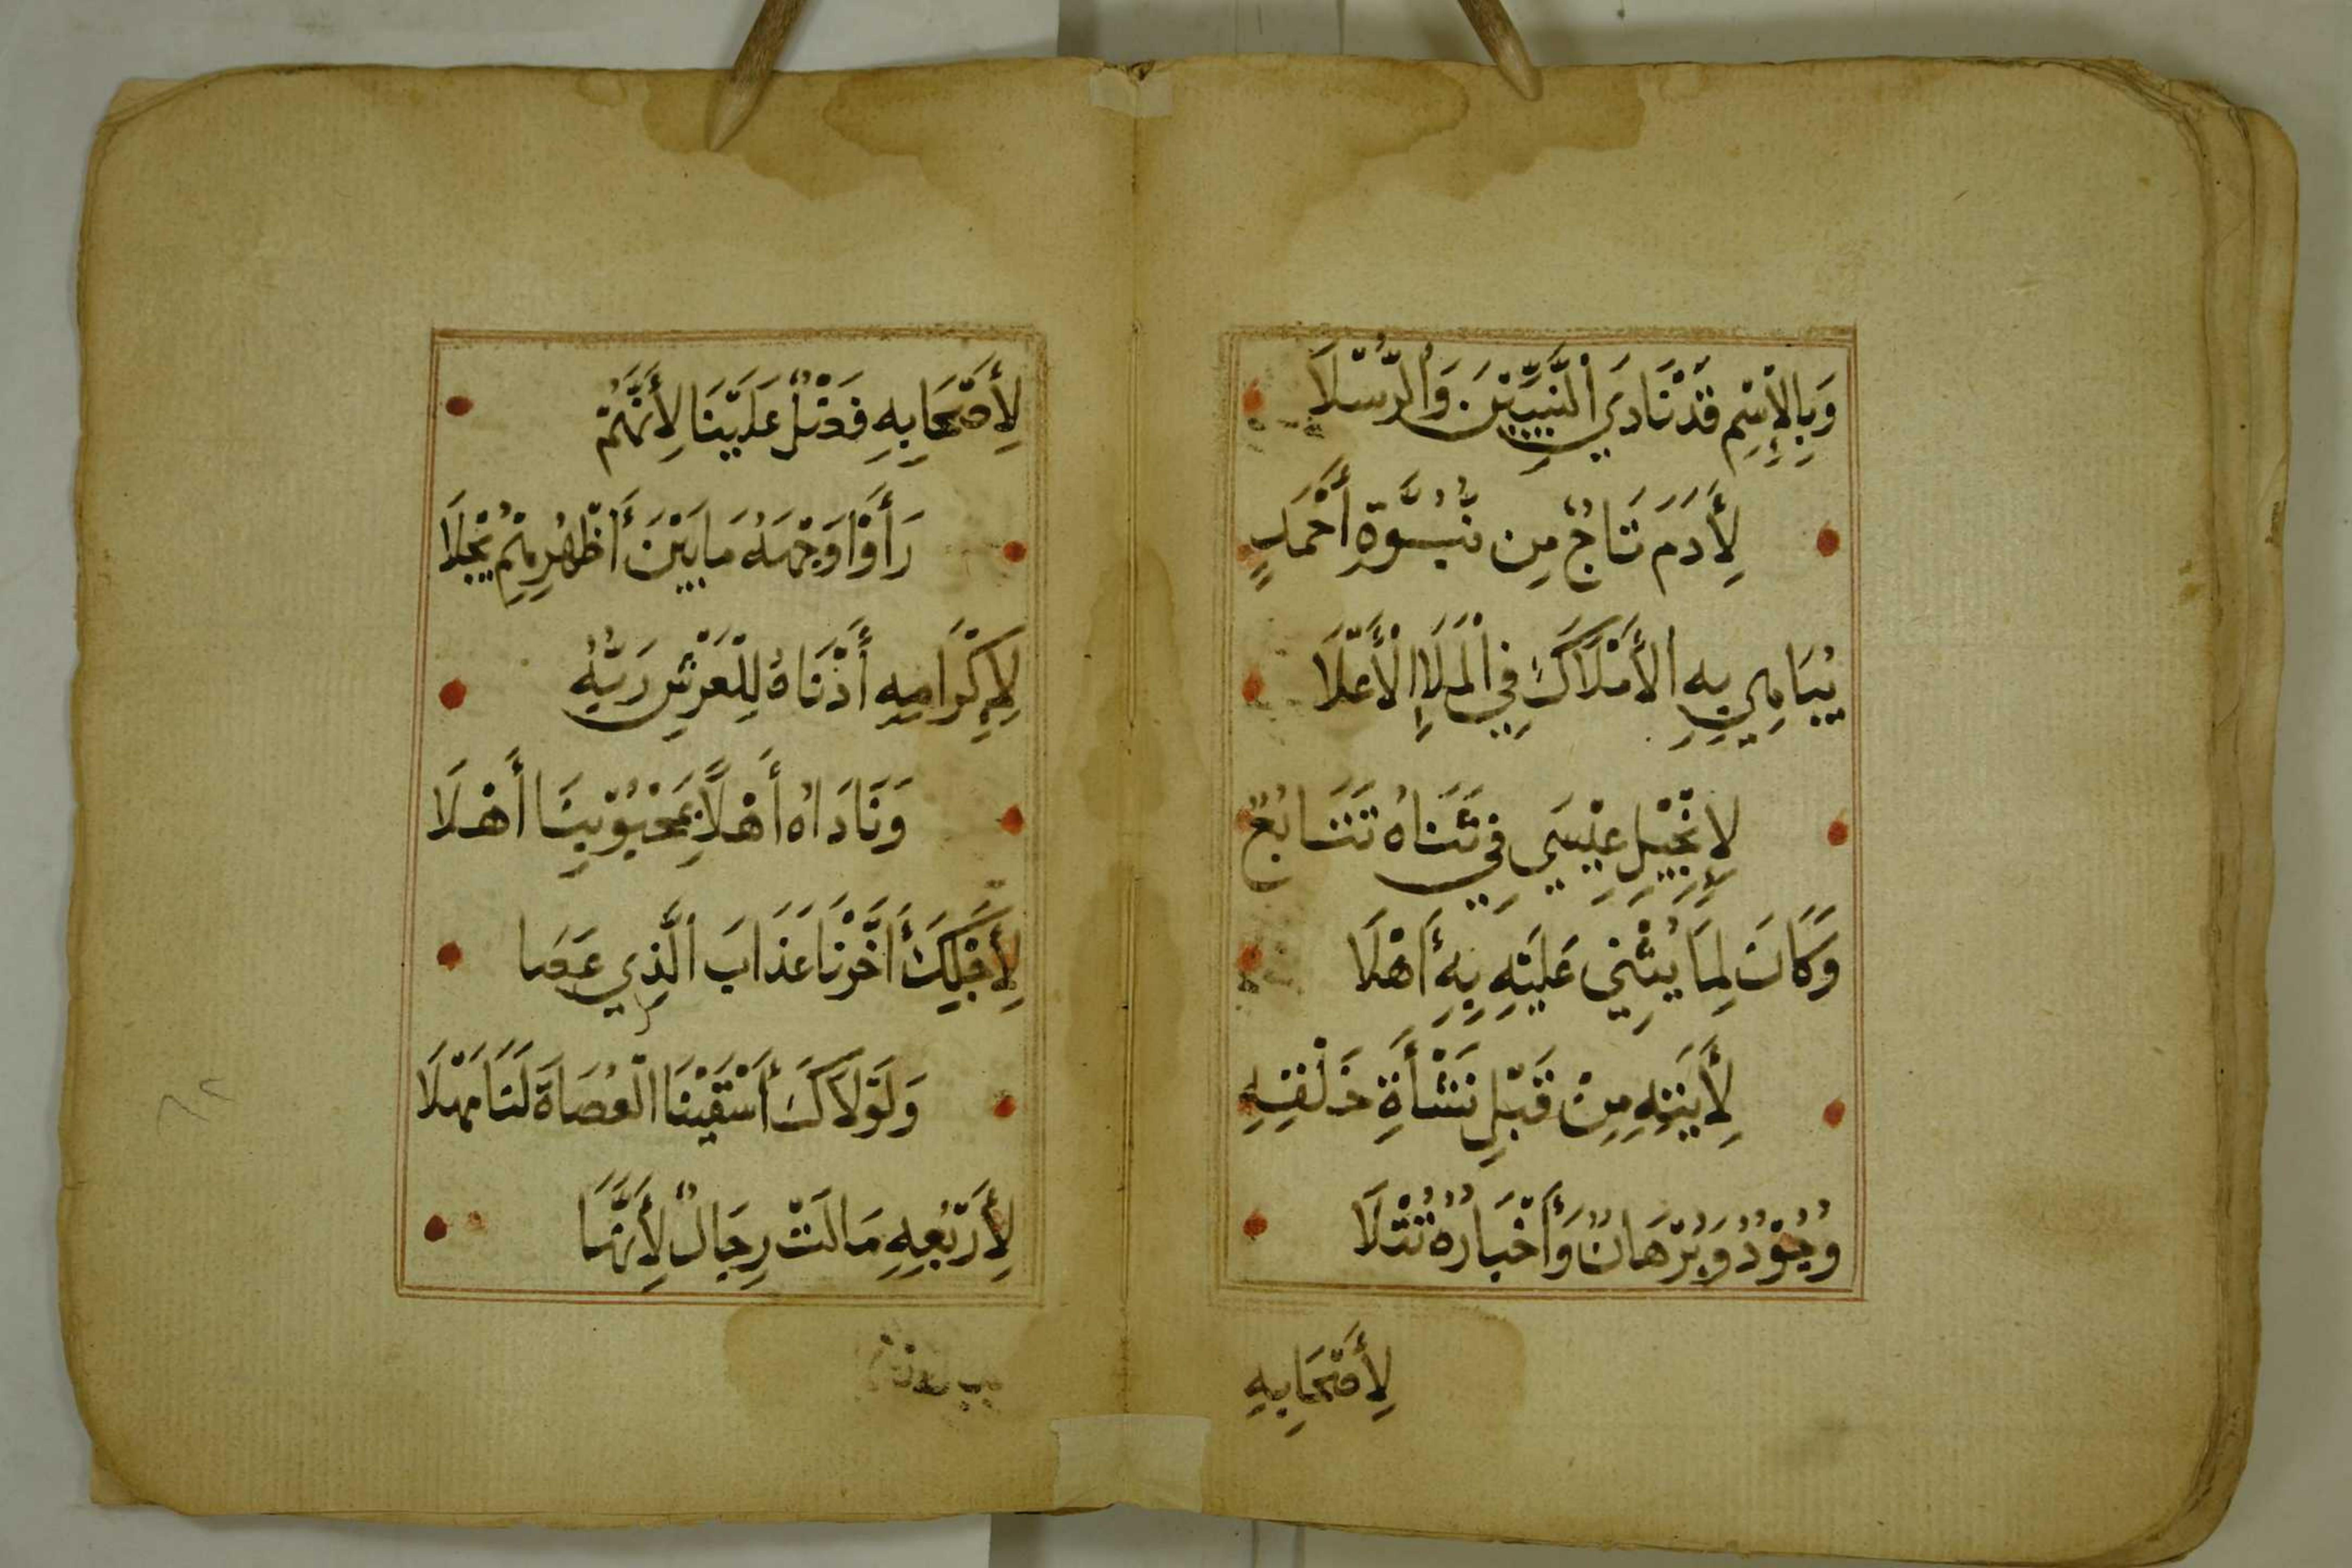 وَبِالْإِسْمِ قَدْ نَادَي النَّبِيِّيْنَ وَالرُّسْلَا
لِأَدَمَ تَاجٌ مِن نُّبُوَّةِ أَحْمَدٍ
يُبَاهِي بِهِ الأَمْلَاكَ فِي الْمَلَإِ الْأَعْلَا
لِإِنْجِيْلِ عِيْسَي فِي ثَنَاهُ تَتَابُعٌ
وَكَانَ لِمَا يُثْنِي عَلَيْهِ بِهِ أَهْلَا
لِأَيَتِهِ مِنْ قَبْلِ نَشْأَةِ خَلْقِهِ
وُجُوْدٌ وَبُرْهَانٌ وَأَخْبَارُهُ تُتْلَا
لِأَصْحَابِهِ
لِأَصْحَابِهِ فَضْلٌ عَلَيْنَا لِأَنَّهُمْ
رَأَوْا وَجْهَهُ مَا بَيْنَ أَظْهُرِهِمْ يُجْلَا
لِإِكْرَامِهِ أَدْنَاهُ لِلْعَرْشِ رَبُّهُ
وَنَادَاهُ أَهْلًا بِمَحْبُوْبِنَا أَهْلَا
لِأَجْلِكَ أَخَّرْنَا عَذَابَ الَّذِي عَصَا
وَلَوْلَاكَ أَسْقَيْنَا الْعُصَاةَ لَنَا مَهْلَا
لِأَرْبُعِهِ مَالَتْ رِجَالٌ لِأَنَّهَا